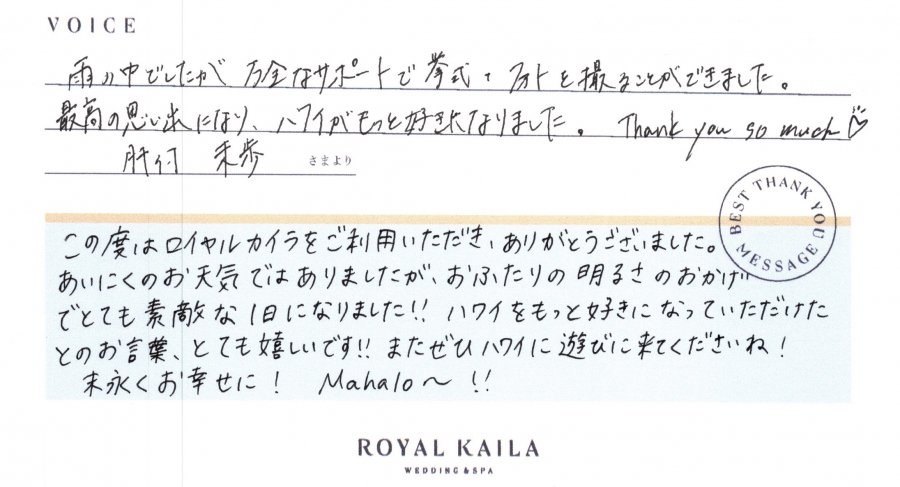 VOICE
雨の中でしたが 万全なサポートで挙式・フォトを撮ることができました。
最高の思い出になり、ハワイがもっと好きになりました。 Thank you so much
肝付 未歩 さまより
BEST THANK YOU MESSAGE
この度はロイヤルカイラをご利用いただき、ありがとうございました。
あいにくのお天気ではありましたが、おふたりの明るさのおかげ
でとても素敵な1日になりました!! ハワイをもっと好きになっていただけた
とのお言葉、とても嬉しいです!! またぜひハワイに遊びに来てくださいね!
末永くお幸せに! Mahalo〜!!
ROYAL KAILA
WEDDING & SPA